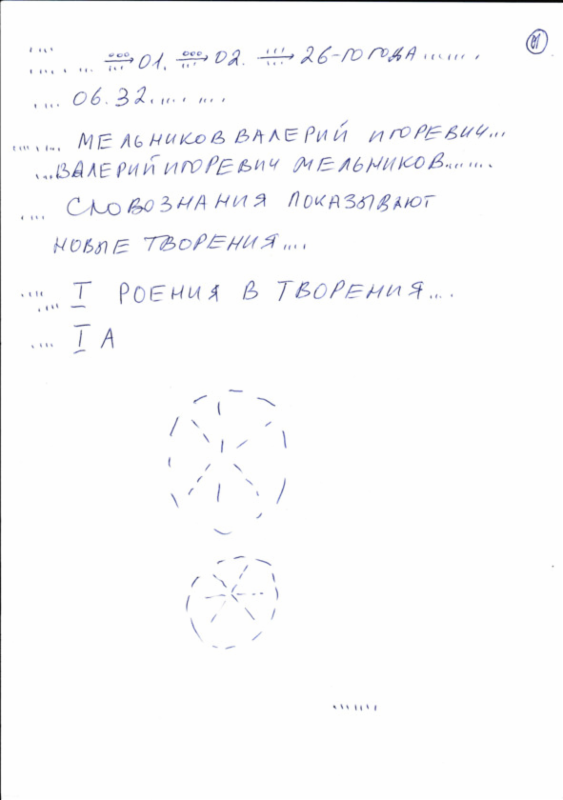 ....
..... ... 01. 02. 26-ГО ГОДА .......
.... 06.32.... ... ...
....... МЕЛЬНИКОВ ВАЛЕРИЙ ИГОРЕВИЧ...
...ВАЛЕРИЙ ИГОРЕВИЧ МЕЛЬНИКОВ.......
.... СЛОВОЗНАНИЯ ПОКАЗЫВАЮТ
НОВЫЕ ТВОРЕНИЯ....
.... I РОЕНИЯ В ТВОРЕНИЯ....
.... I А
.......